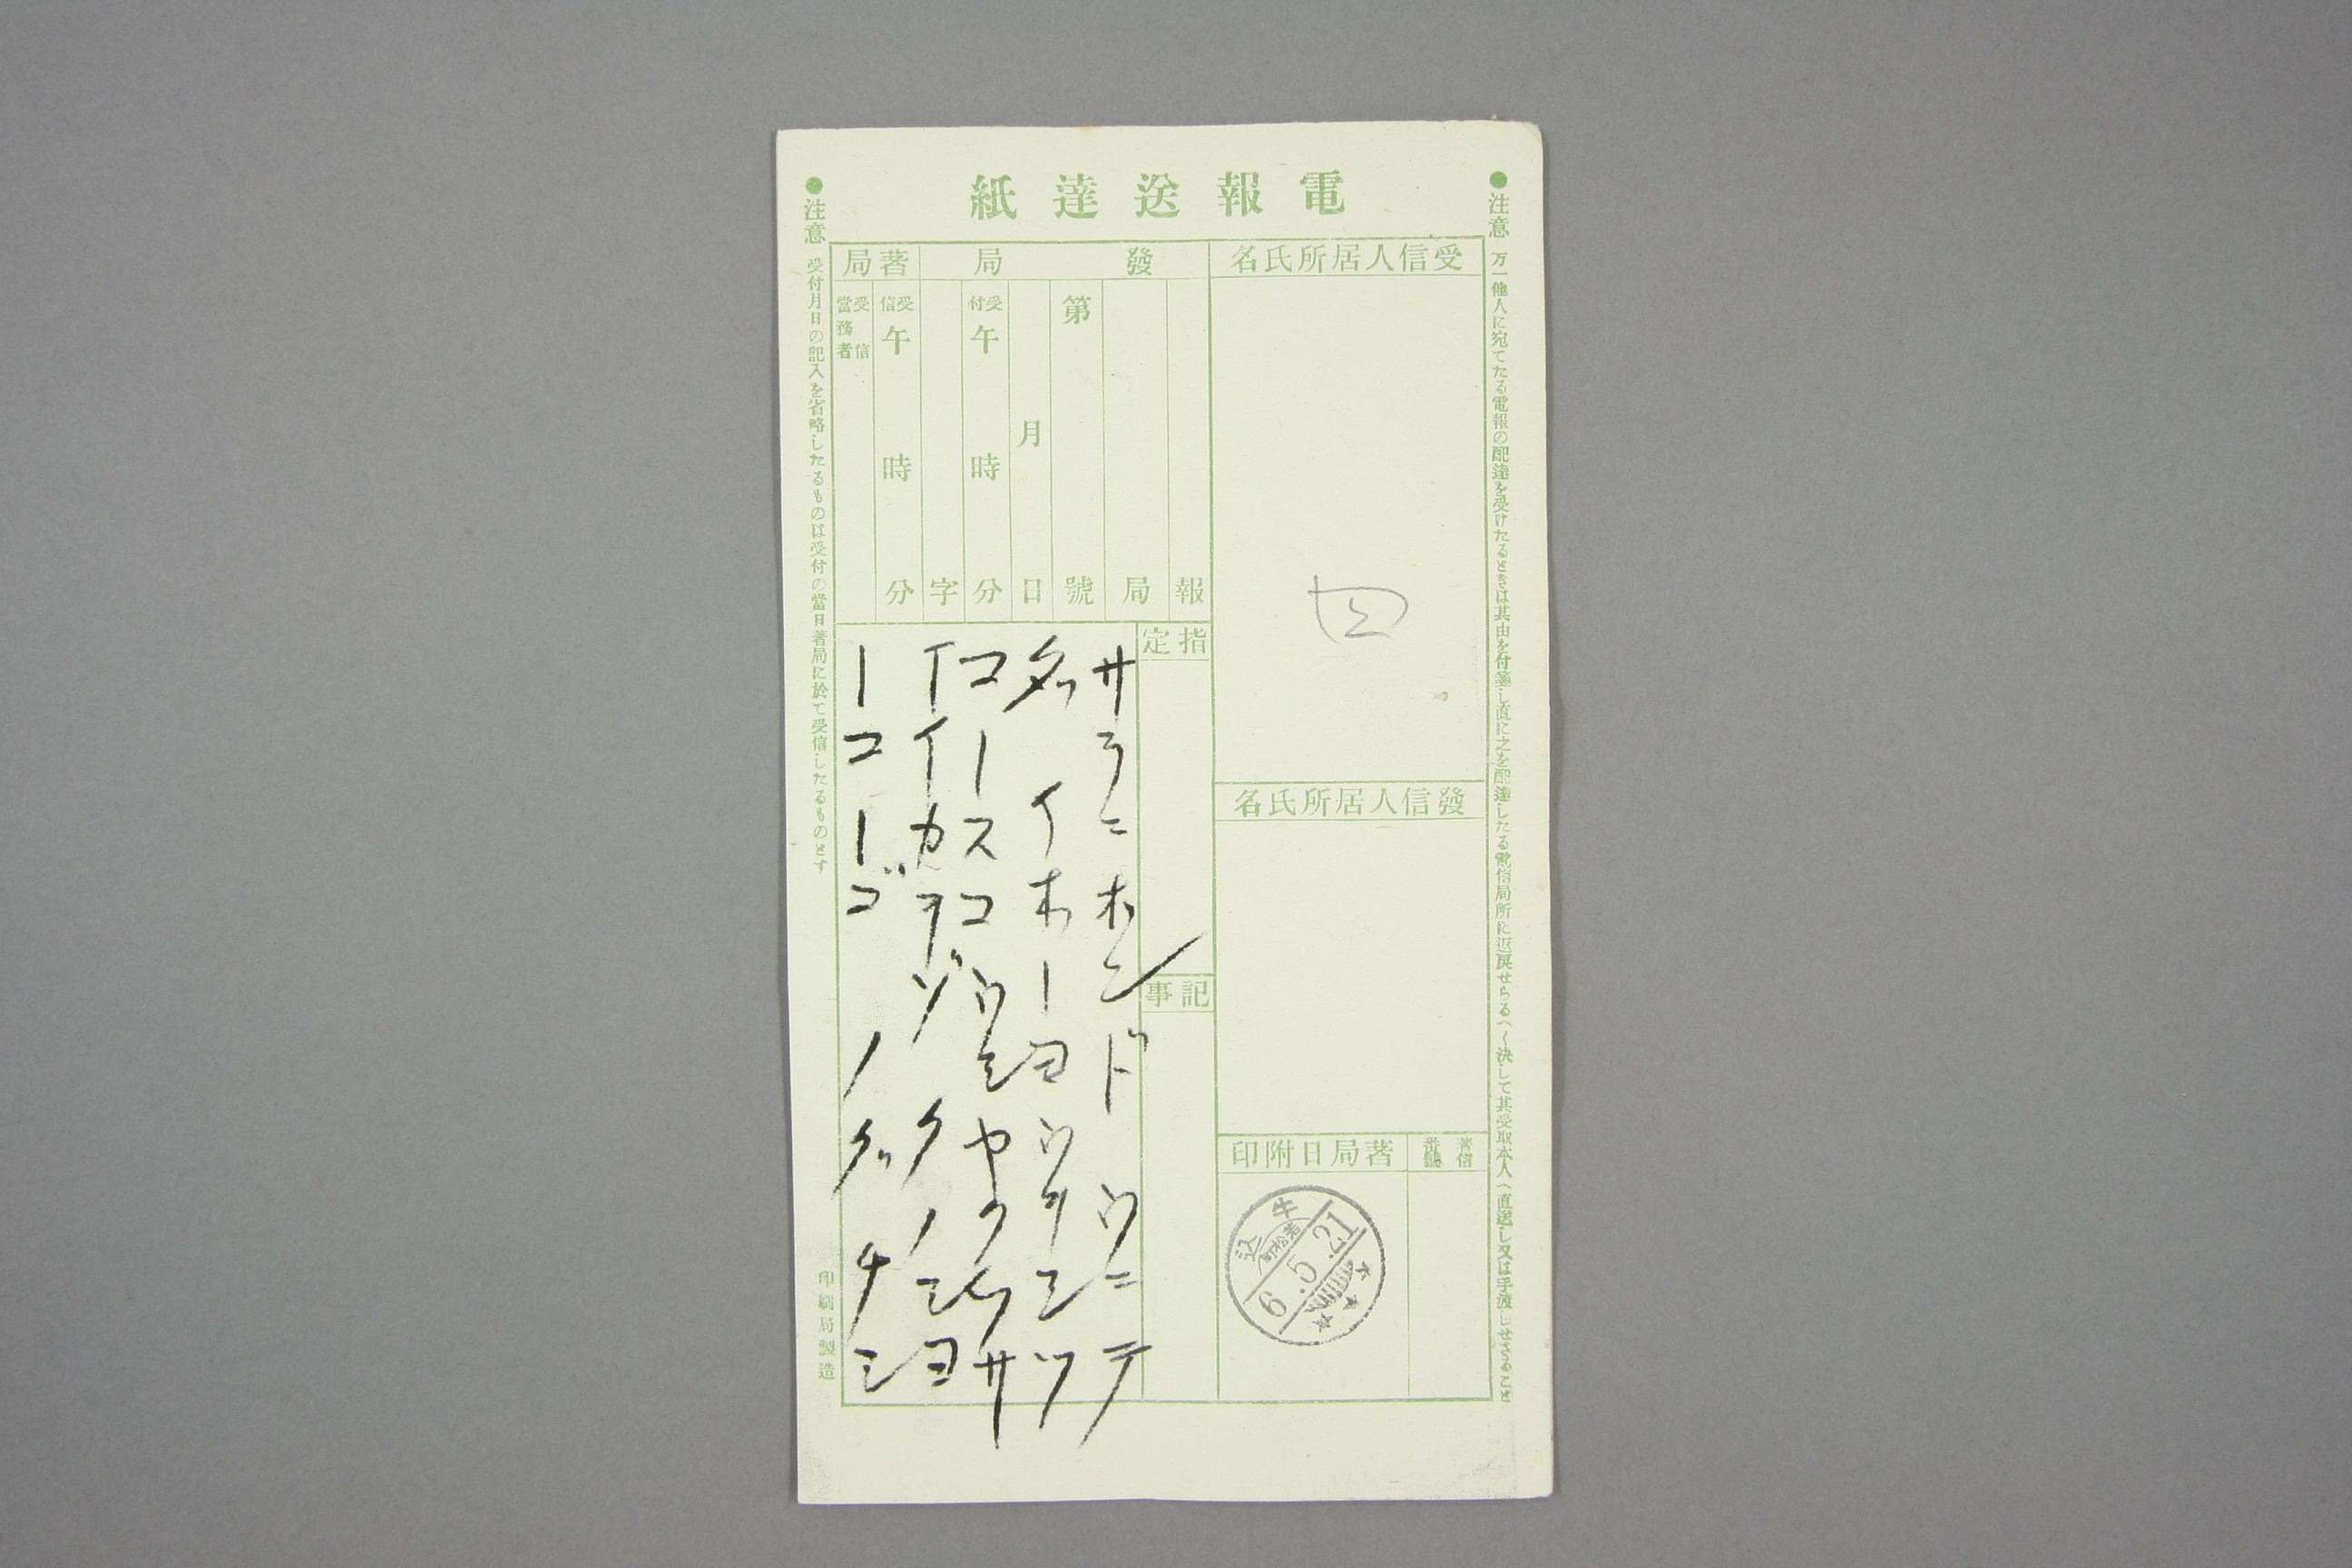 電報送達紙
●注意 万一他人に宛てたる電報の配達を受けたるときは其由を付箋し直に之を配達したる電信局所に返戻せらるへく決して其受取本人へ直送し又は手渡しせさること
受信人居所氏名
四
發信人居所氏名
著信番號
著局日附印
牛込
若松町
6.5.21
發局
報
局
第 號
月 日
受付 午 時 分
字
著局
受信 午 時 分
受信當務者
指定
記事
サラニホンドウニテ
タイホーヨウヲシツ
コースコウシヤクフサ
イイカヲゾクノシヨ
ーコーゴノタチシ
●注意 受付月日の記入を省略したるものは受付の當日著局に於て受信したるものとす
印刷局製造